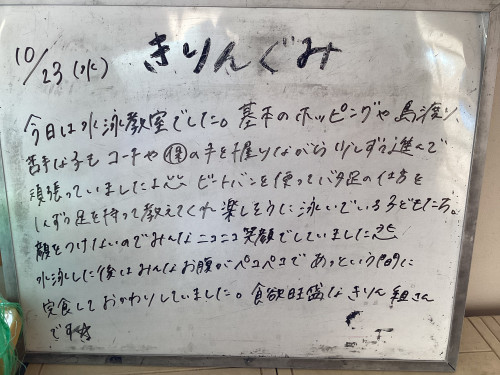 10/23(水) きりんぐみ
今日は水泳教室でした。基本のホッピングや島渡り、
苦手な子もコーチや㋭の手を握りながら少しずつ進んで
頑張っていましたよ ビートバンを使ってバタ足の仕方を
1人ずつ足を持って教えてくれ楽しそうに泳いでいる子どもたち。
顔をつけないのでみんなニコニコ笑顔でしていました
水泳した後はみんなお腹がペコペコであっという間に
完食しておかわりしていました。食欲旺盛なきりん組さん
です